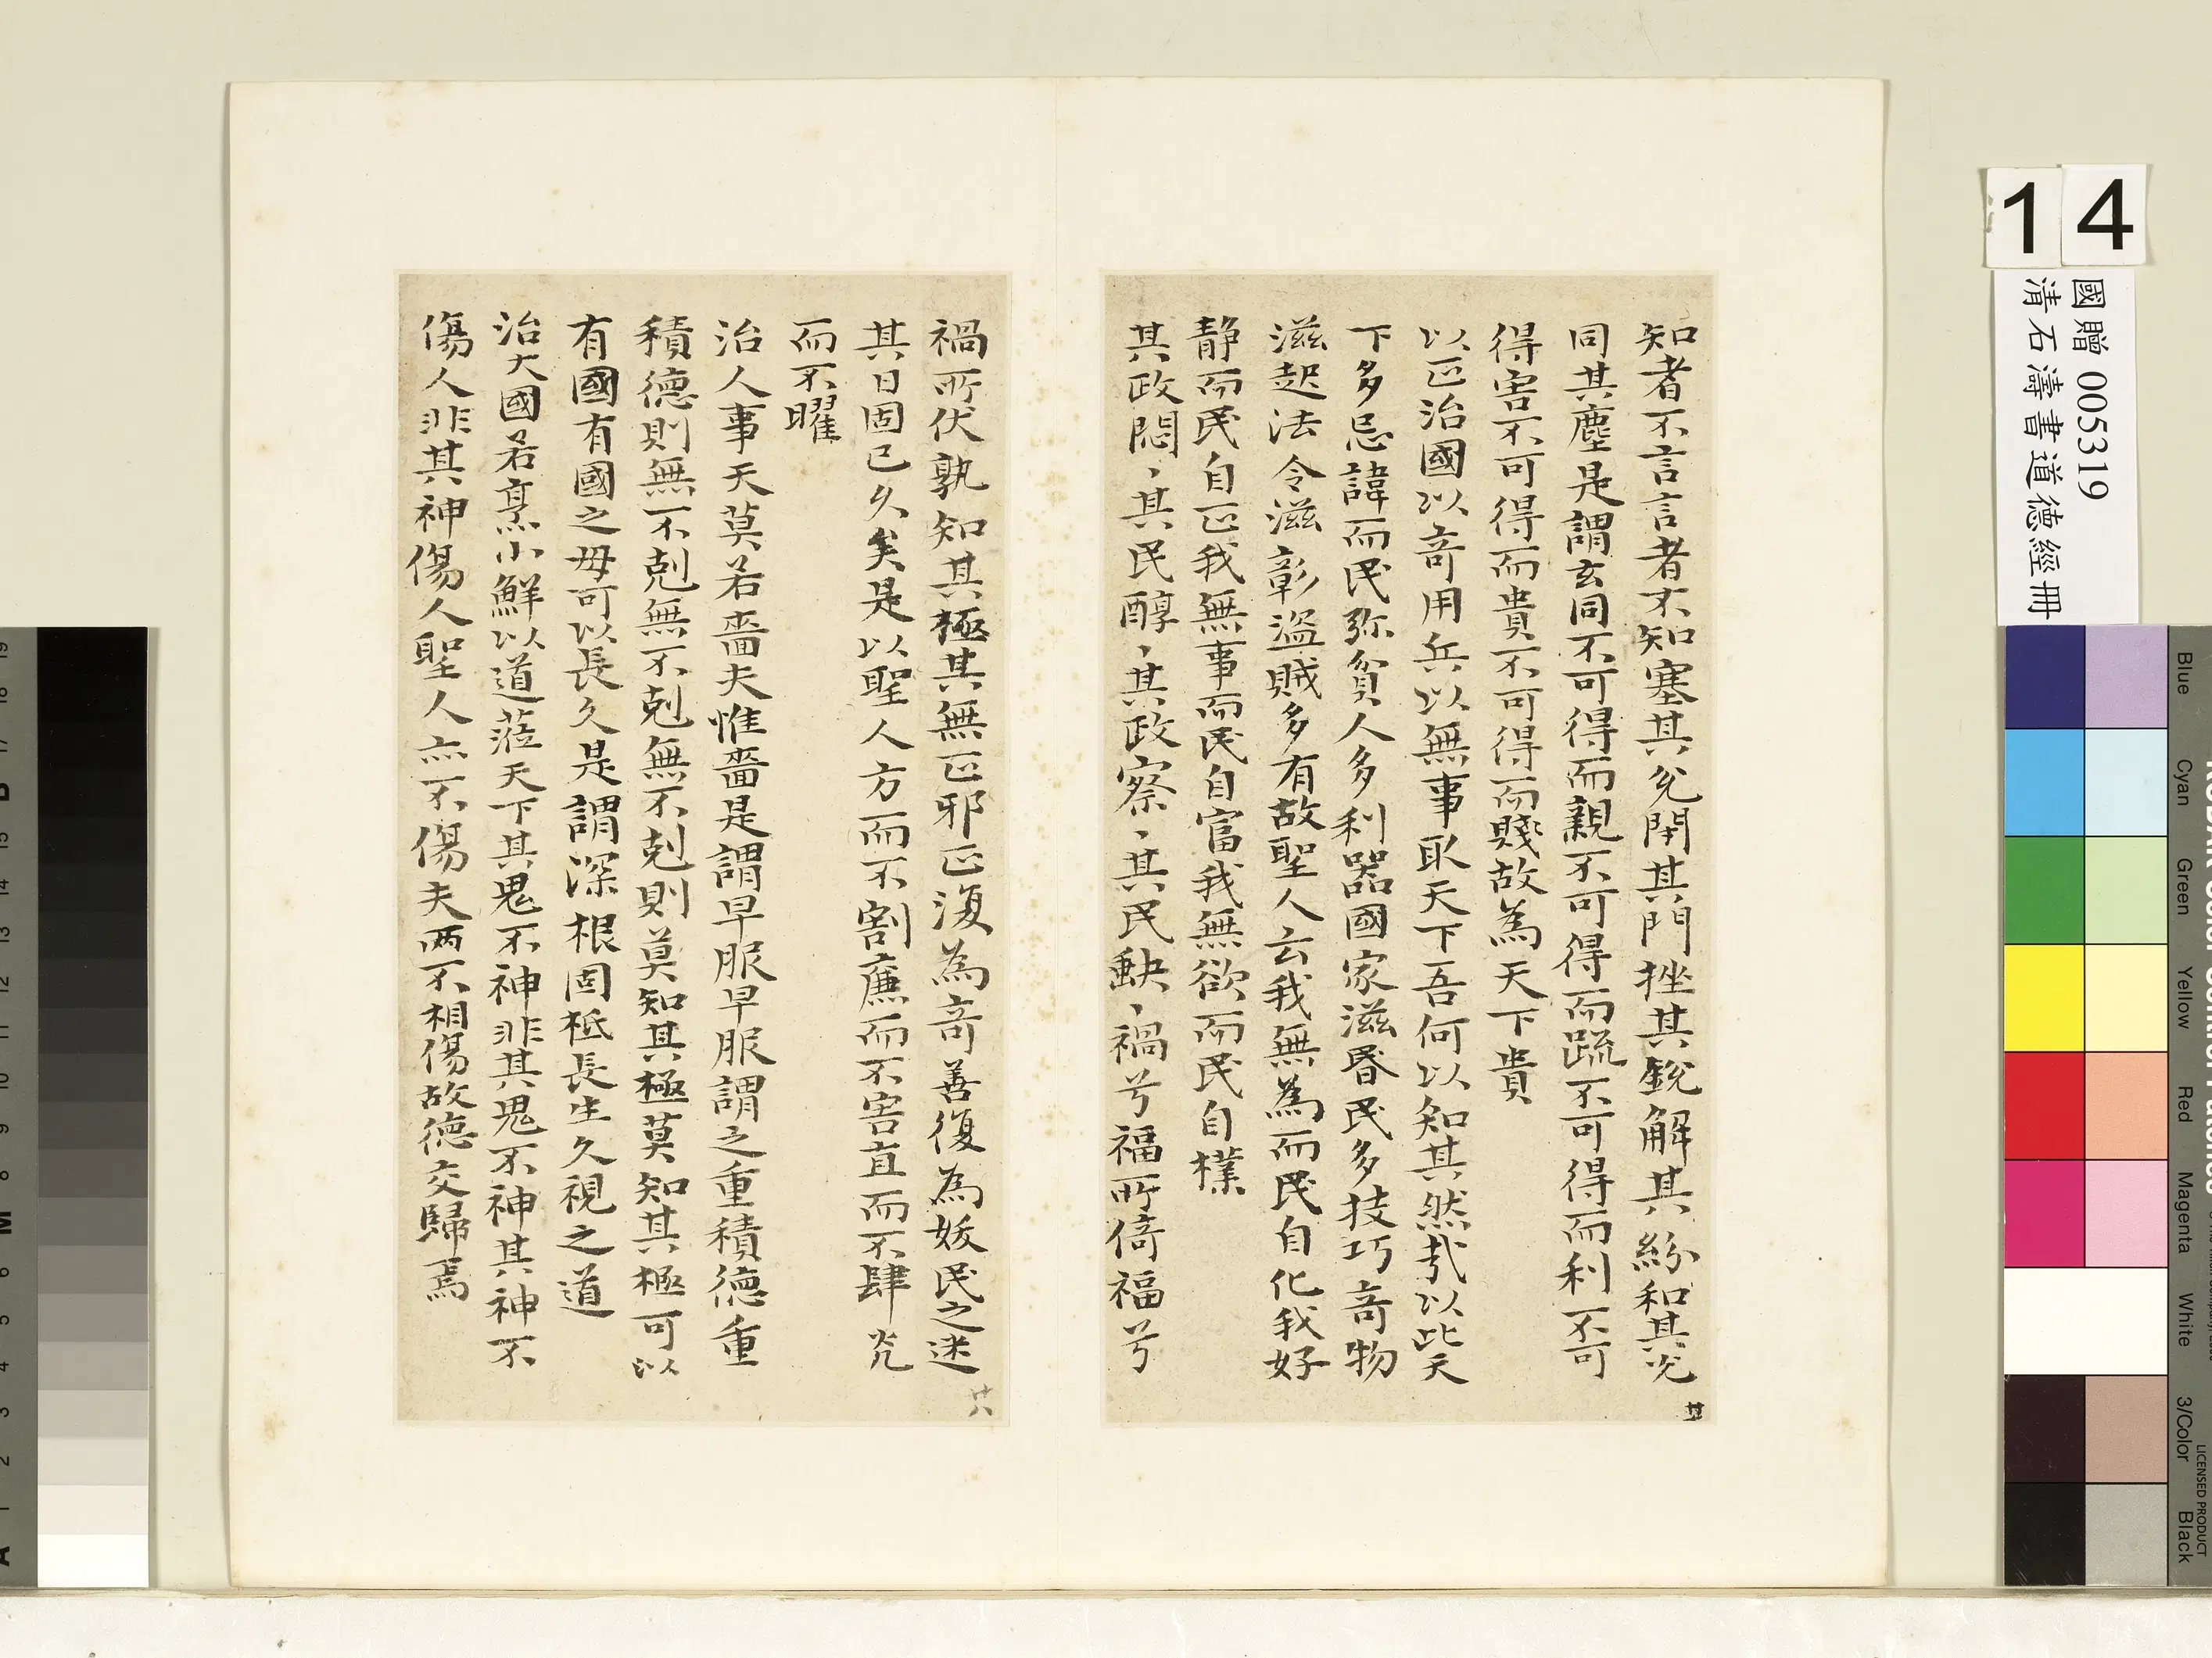 知者不言言者不知塞其兌閉其門挫其銳解其紛和其光
同其塵是謂玄同不可得而親不可得而疏不可得而利不可
得害不可得而貴不可得而賤故為天下貴
以正治國以奇用兵以無事取天下吾何以知其然哉以此天
下多忌諱而民弥貧人多利器國家滋昬民多技巧奇物
滋起法令滋彰盜賊多有故聖人云我無為而民自化我好
静而民自正我無事而民自富我無欲而民自樸
其政悶、其民醇、其政察、其民缺、禍兮福所倚福兮
禍所伏孰知其極其無正邪正復為奇善復為妖民之迷
其日固已久矣是以聖人方而不割廉而不害直而不肆光
而不曜
治人事天莫若嗇夫惟嗇是謂早服早服謂之重積德重
積德則無不剋無不剋無不剋則莫知其極莫知其極可以
有國有國之母可以長久是謂深根固柢長生久視之道
治大國若烹小鮮以道蒞天下其鬼不神非其鬼不神其神不
傷人非其神傷人聖人亦不傷夫两不相傷故德交歸焉
廿六
14
國贈 005319
清石濤書道德經冊
Blue
Cyan
Green
Yellow
Red
Magenta
White
3/Color
Black
LICENSED PRODUCT